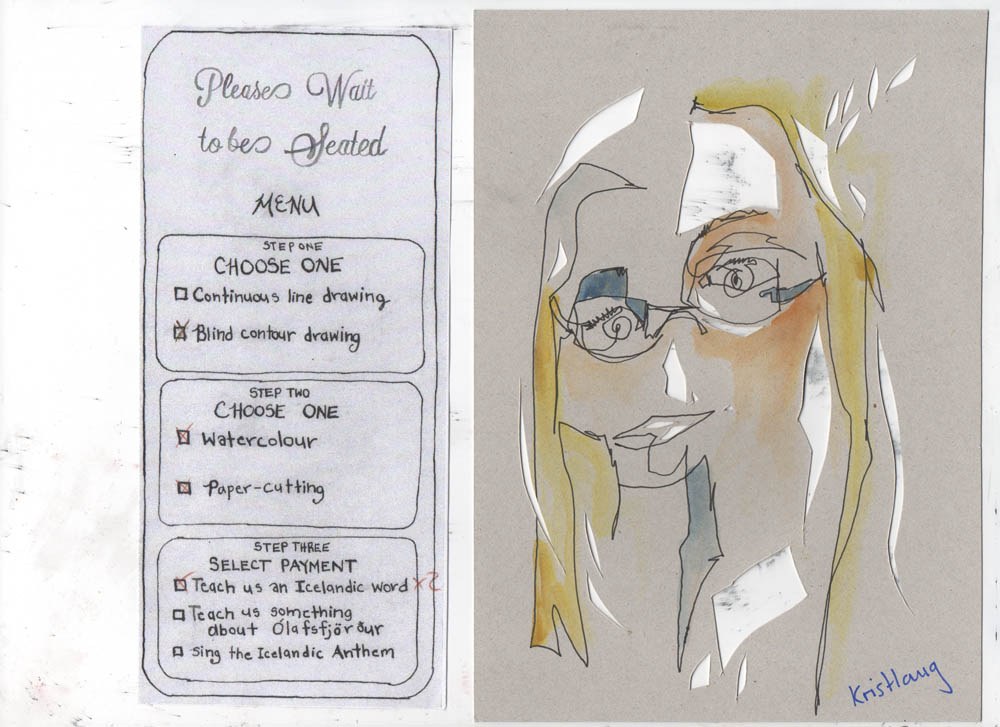 Please Wait
to be Seated
MENU
STEP ONE
CHOOSE ONE
Continuous line drawing
Blind contour drawing
STEP TWO
CHOOSE ONE
Watercolour
Paper-cutting
STEP THREE
SELECT PAYMENT
Teach us an Icelandic word x2
Teach us something
about Ólafsfjörður
Sing the Icelandic Anthem
Kristlaug